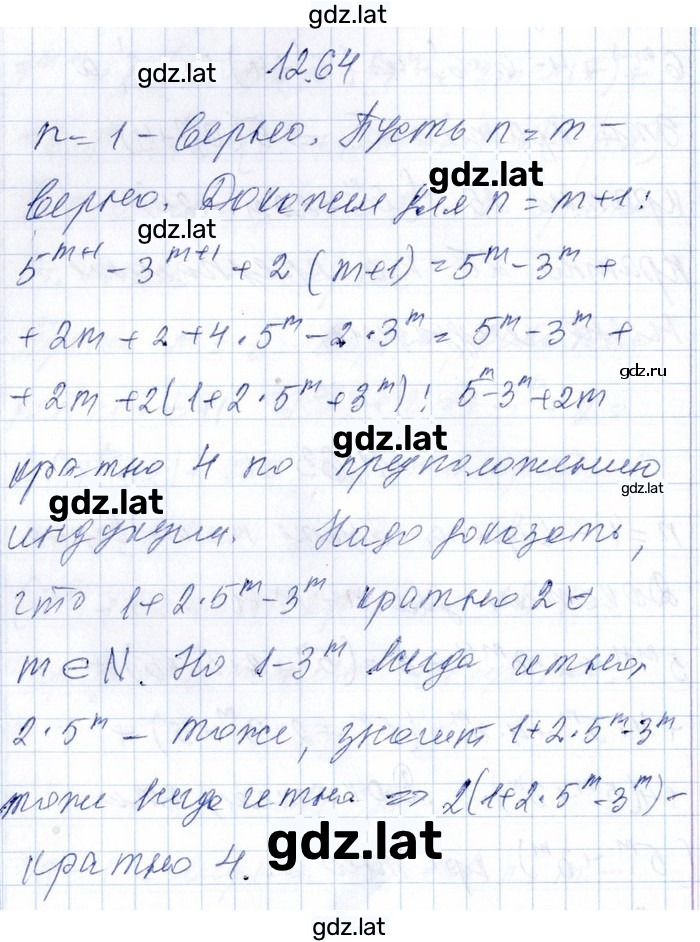 gdz.lat
12.64
gdz.lat
n = 1 - верно. Пусть n = m -
gdz.lat
верно. Докажем для n = m+1:
gdz.lat
5^{m+1} - 3^{m+1} + 2 (m+1) = 5^m - 3^m +
+ 2m + 2 + 4 · 5^m - 2 · 3^m = 5^m - 3^m +
gdz.ru
+ 2m + 2(1 + 2 · 5^m + 3^m)! 5^m - 3^m + 2m
gdz.lat
кратно 4 по предположению
gdz.lat
gdz.lat
индукции. Надо доказать,
что 1 + 2 · 5^m - 3^m кратно 2 ∀
m ∈ N. Но 1 - 3^m всегда четно,
2 · 5^m - тоже, значит 1 + 2 · 5^m - 3^m
тоже всегда четна => 2(1 + 2 · 5^m - 3^m) -
gdz.lat
кратно 4.
gdz.lat